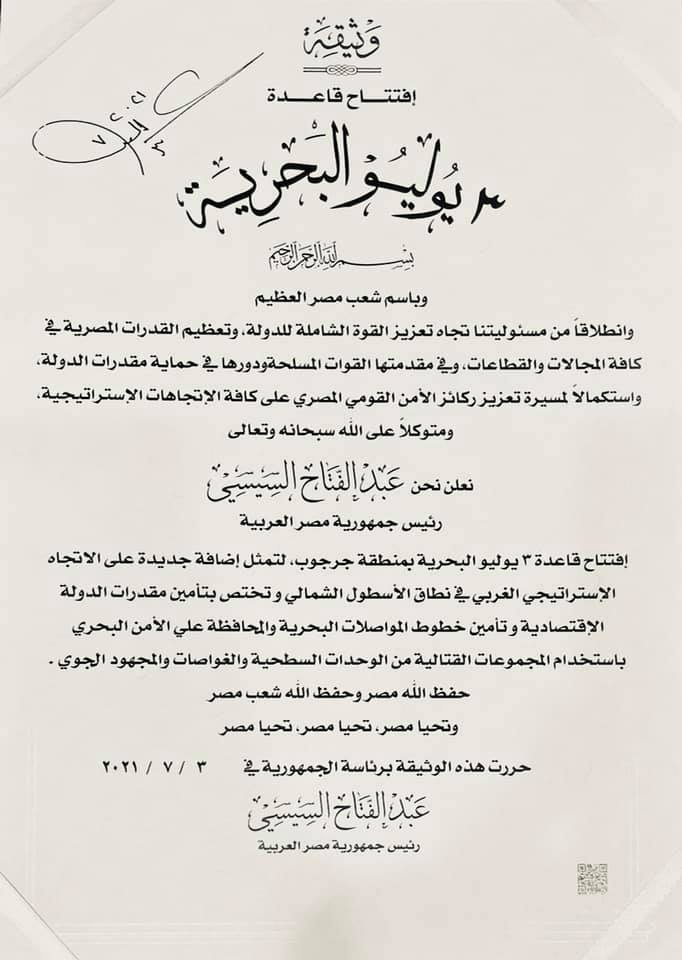 وثيقة
إفتتاح قاعدة
٣ يوليو البحرية
٢٠٢١
٧
٣
بسم الله الرحمن الرحيم
وباسم شعب مصر العظيم
وانطلاقاً من مسئوليتنا تجاه تعزيز القوة الشاملة للدولة، وتعظيم القدرات المصرية في
كافة المجالات والقطاعات، وفي مقدمتها القوات المسلحة ودورها في حماية مقدرات الدولة،
واستكمالاً لمسيرة تعزيز ركائز الأمن القومي المصري على كافة الإتجاهات الإستراتيجية،
ومتوكلاً على الله سبحانه وتعالى
نعلن نحن عبد الفتاح السيسي
رئيس جمهورية مصر العربية
إفتتاح قاعدة ٣ يوليو البحرية بمنطقة جرجوب، لتمثل إضافة جديدة على الاتجاه
الإستراتيجي الغربي في نطاق الأسطول الشمالي وتختص بتأمين مقدرات الدولة
الإقتصادية وتأمين خطوط المواصلات البحرية والمحافظة علي الأمن البحري
باستخدام المجموعات القتالية من الوحدات السطحية والغواصات والمجهود الجوي .
حفظ الله مصر وحفظ الله شعب مصر
وتحيا مصر، تحيا مصر، تحيا مصر
حررت هذه الوثيقة برئاسة الجمهورية في ٣ / ٧ / ٢٠٢١
عبد الفتاح السيسي
رئيس جمهورية مصر العربية